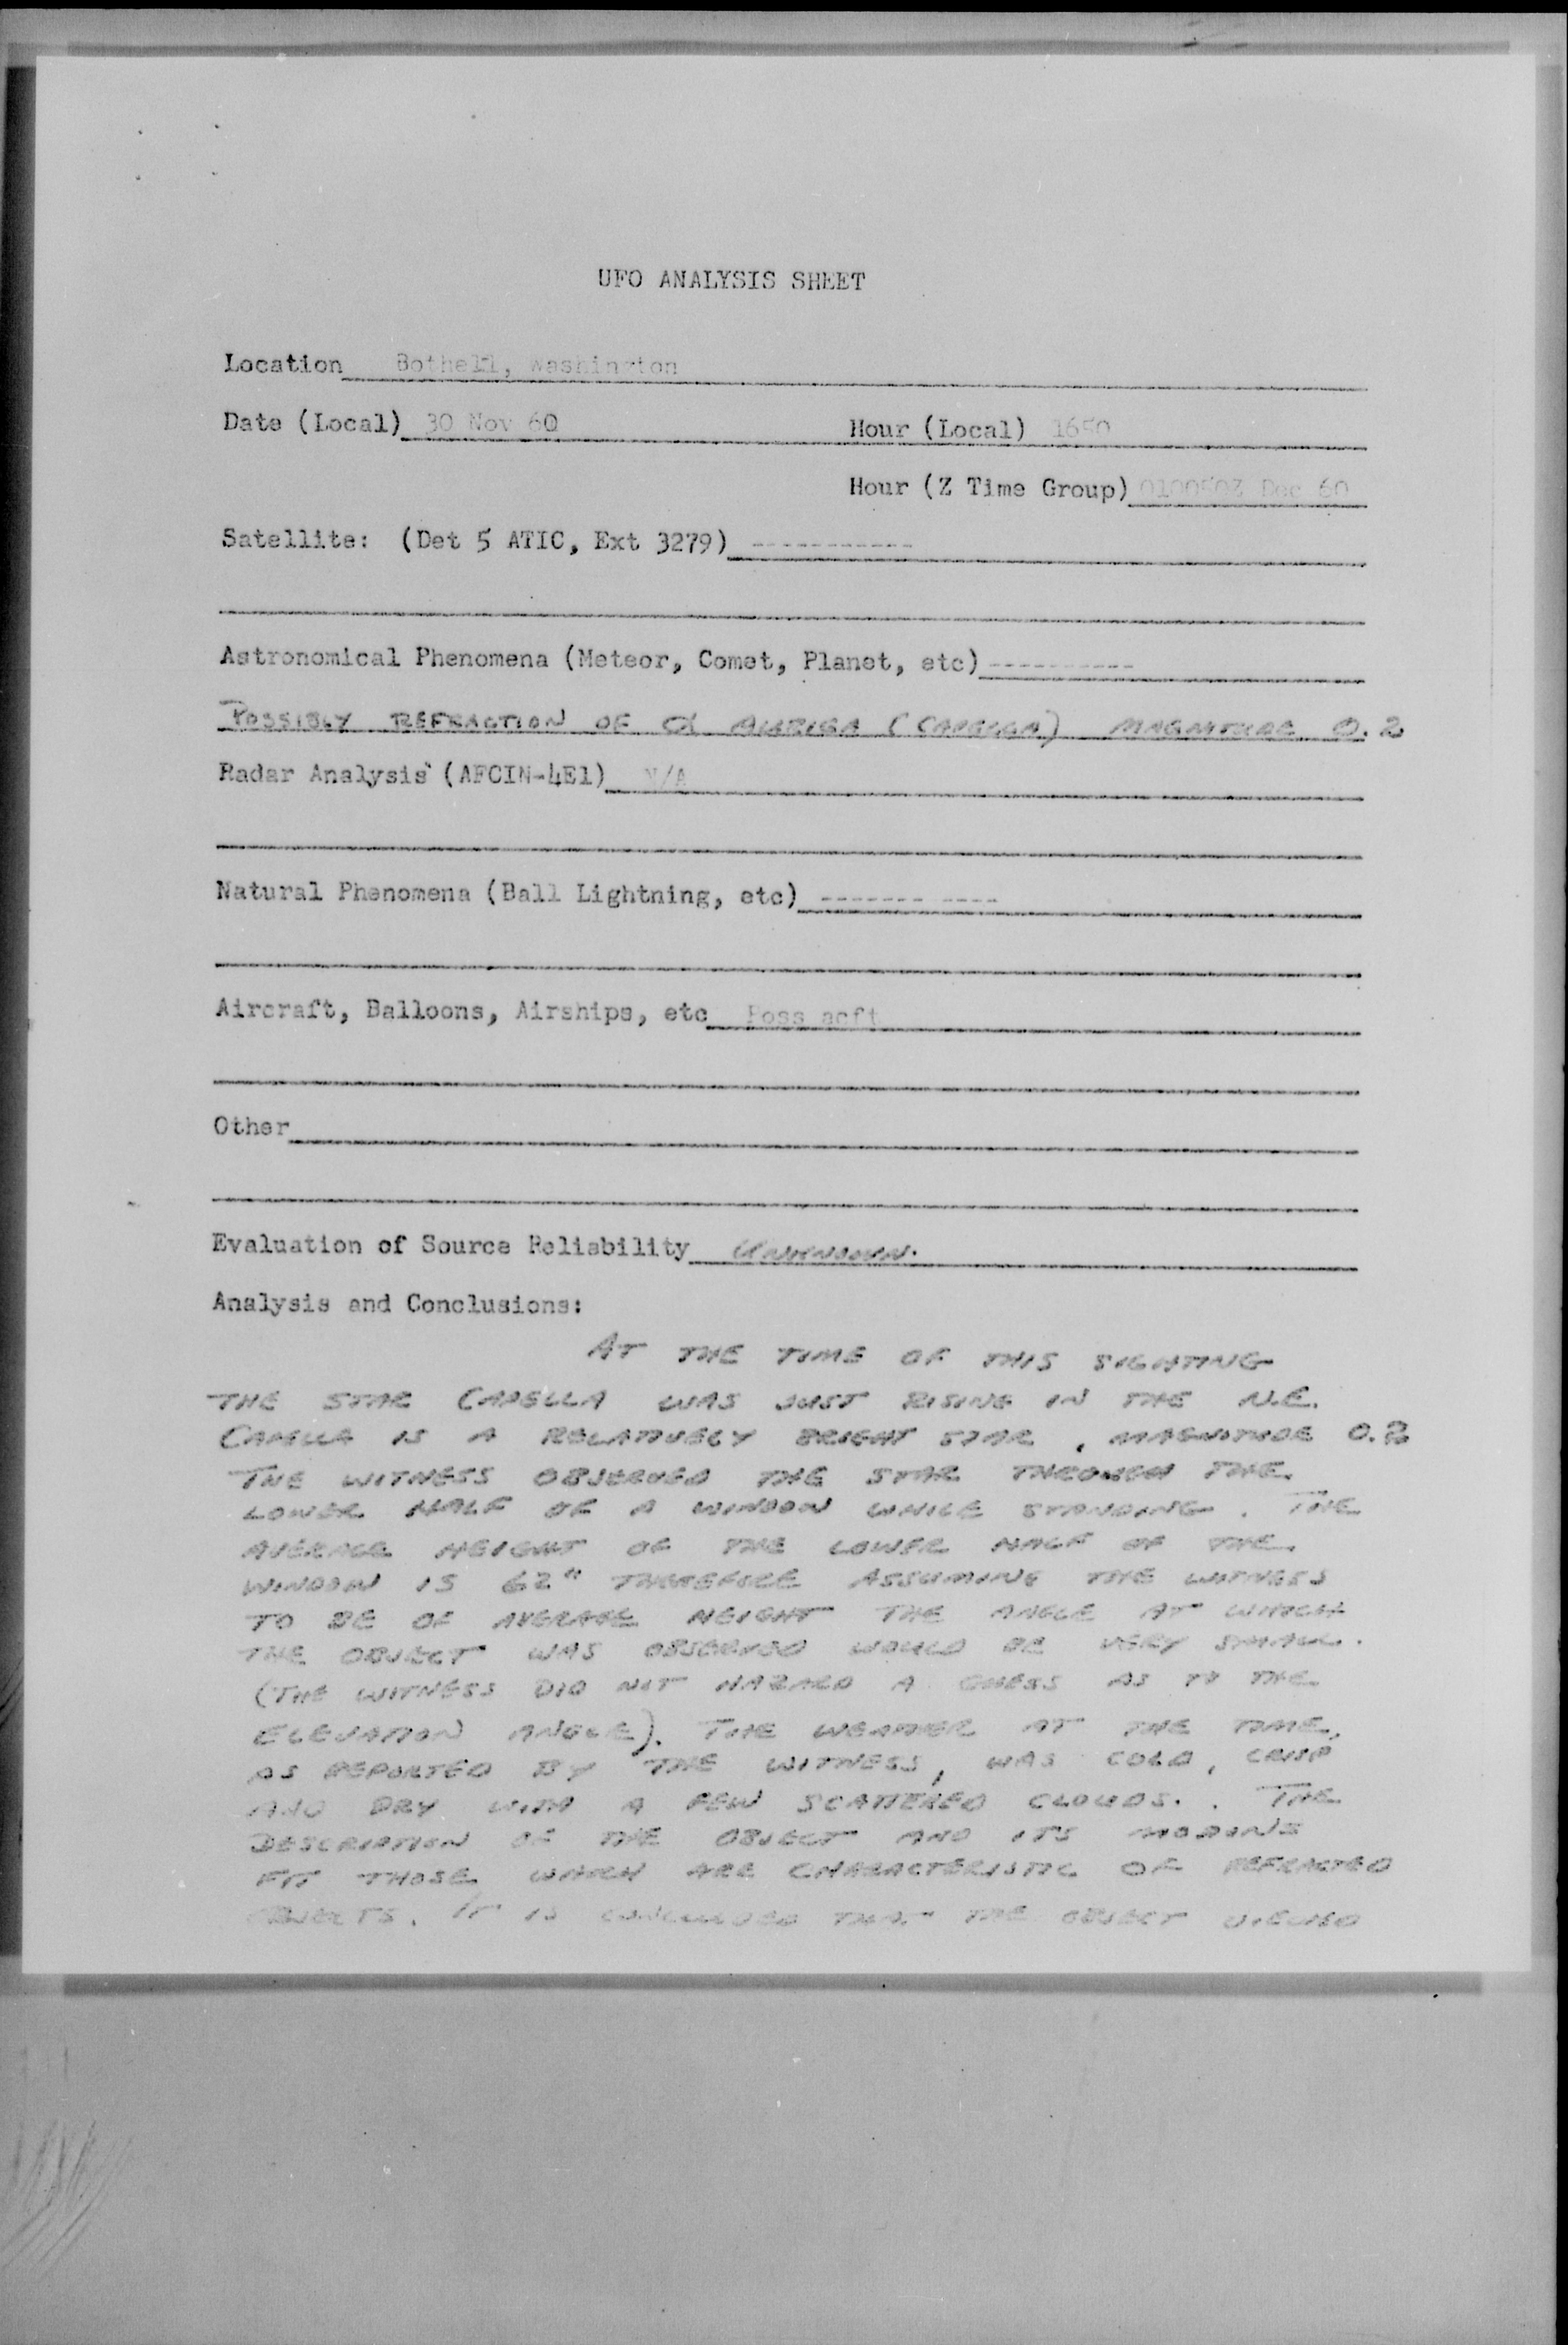 UFO ANALYSIS SHEET
Location Bothell, Washington
Date (Local) 30 Nov 60 Hour (Local) 1650
Hour (Z Time Group) 010050Z Dec 60
Satellite: (Det 5 ATIC, Ext 3279) -----------
Astronomical Phenomena (Meteor, Comet, Planet, etc) ----------
POSSIBLY REFRACTION OF α AURIGA (CAPELLA) MAGNITUDE 0.2
Radar Analysis (AFCIN-4E1) N/A
Natural Phenomena (Ball Lightning, etc) ------- ----
Aircraft, Balloons, Airships, etc Poss acft
Other
Evaluation of Source Reliability UNKNOWN.
Analysis and Conclusions:
AT THE TIME OF THIS SIGHTING
THE STAR CAPELLA WAS JUST RISING IN THE N.E.
CAPELLA IS A RELATIVELY BRIGHT STAR, MAGNITUDE 0.2
THE WITNESS OBSERVED THE STAR THROUGH THE
LOWER HALF OF A WINDOW WHILE STANDING. THE
AVERAGE HEIGHT OF THE LOWER HALF OF THE
WINDOW IS 62" THEREFORE ASSUMING THE WITNESS
TO BE OF AVERAGE HEIGHT THE ANGLE AT WHICH
THE OBJECT WAS OBSERVED WOULD BE VERY SMALL.
(THE WITNESS DID NOT HAZARD A GUESS AS TO THE
ELEVATION ANGLE). THE WEATHER AT THE TIME,
AS REPORTED BY THE WITNESS, WAS COLD, CRISP
AND DRY WITH A FEW SCATTERED CLOUDS. . THE
DESCRIPTION OF THE OBJECT AND ITS MOTIONS
FIT THOSE WHICH ARE CHARACTERISTIC OF REFRACTED
OBJECTS. IT IS CONCLUDED THAT THE OBJECT VIEWED